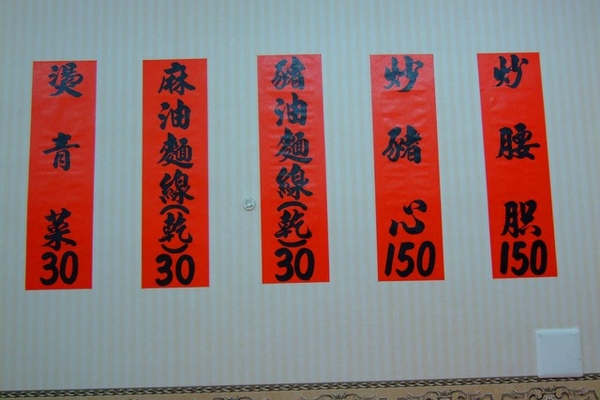 炒腰150
炒豬心150
豬油麵線(乾)30
麻油麵線(乾)30
燙青菜30